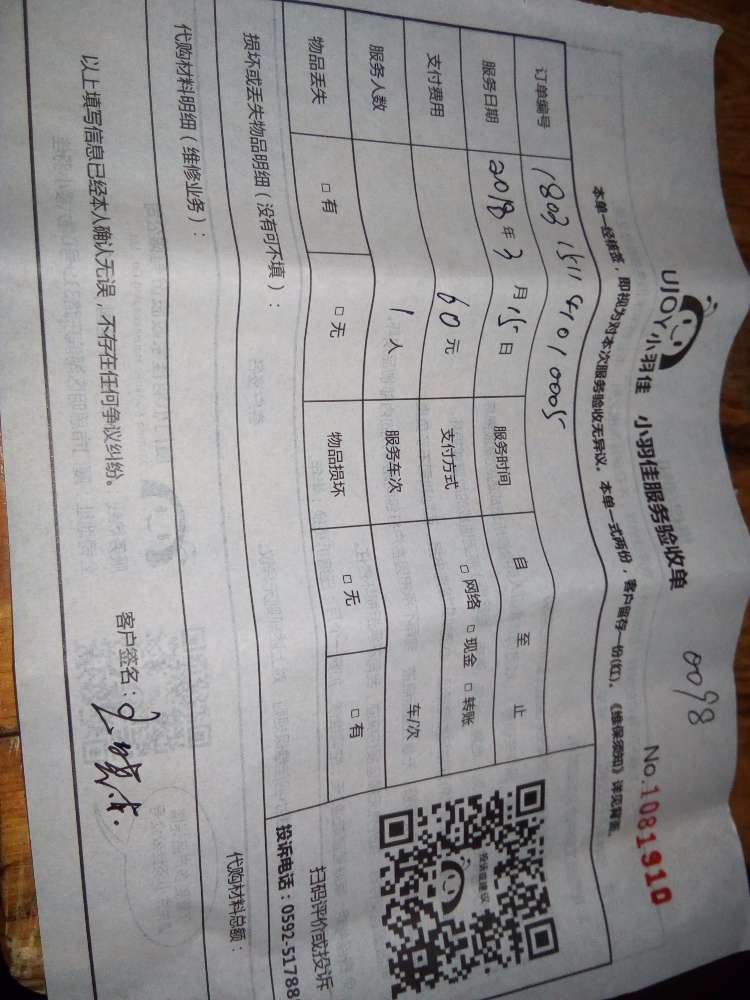 0098
UJOY小羽佳 小羽佳服务验收单 No.1081910
本单一经核签，即视为对本次服务验收无异议。本单一式两份，客户留存一份(红)。《维保须知》详见背面。
订单编号 1803 1511 0101 0005
服务日期 2018年3月15日 服务时间 自 至 止
支付费用 60元 支付方式 □网络 □现金 □转账
服务人数 1人 服务车次 车/次
物品丢失 □有 □无 物品损坏 □无 □有
投诉或建议
扫码评价或投诉
投诉电话：0592-51788
损坏或丢失物品明细（没有可不填）：
代购材料明细（维修业务）： 代购材料总额：
以上填写信息已经本人确认无误，不存在任何争议纠纷。 客户签名：